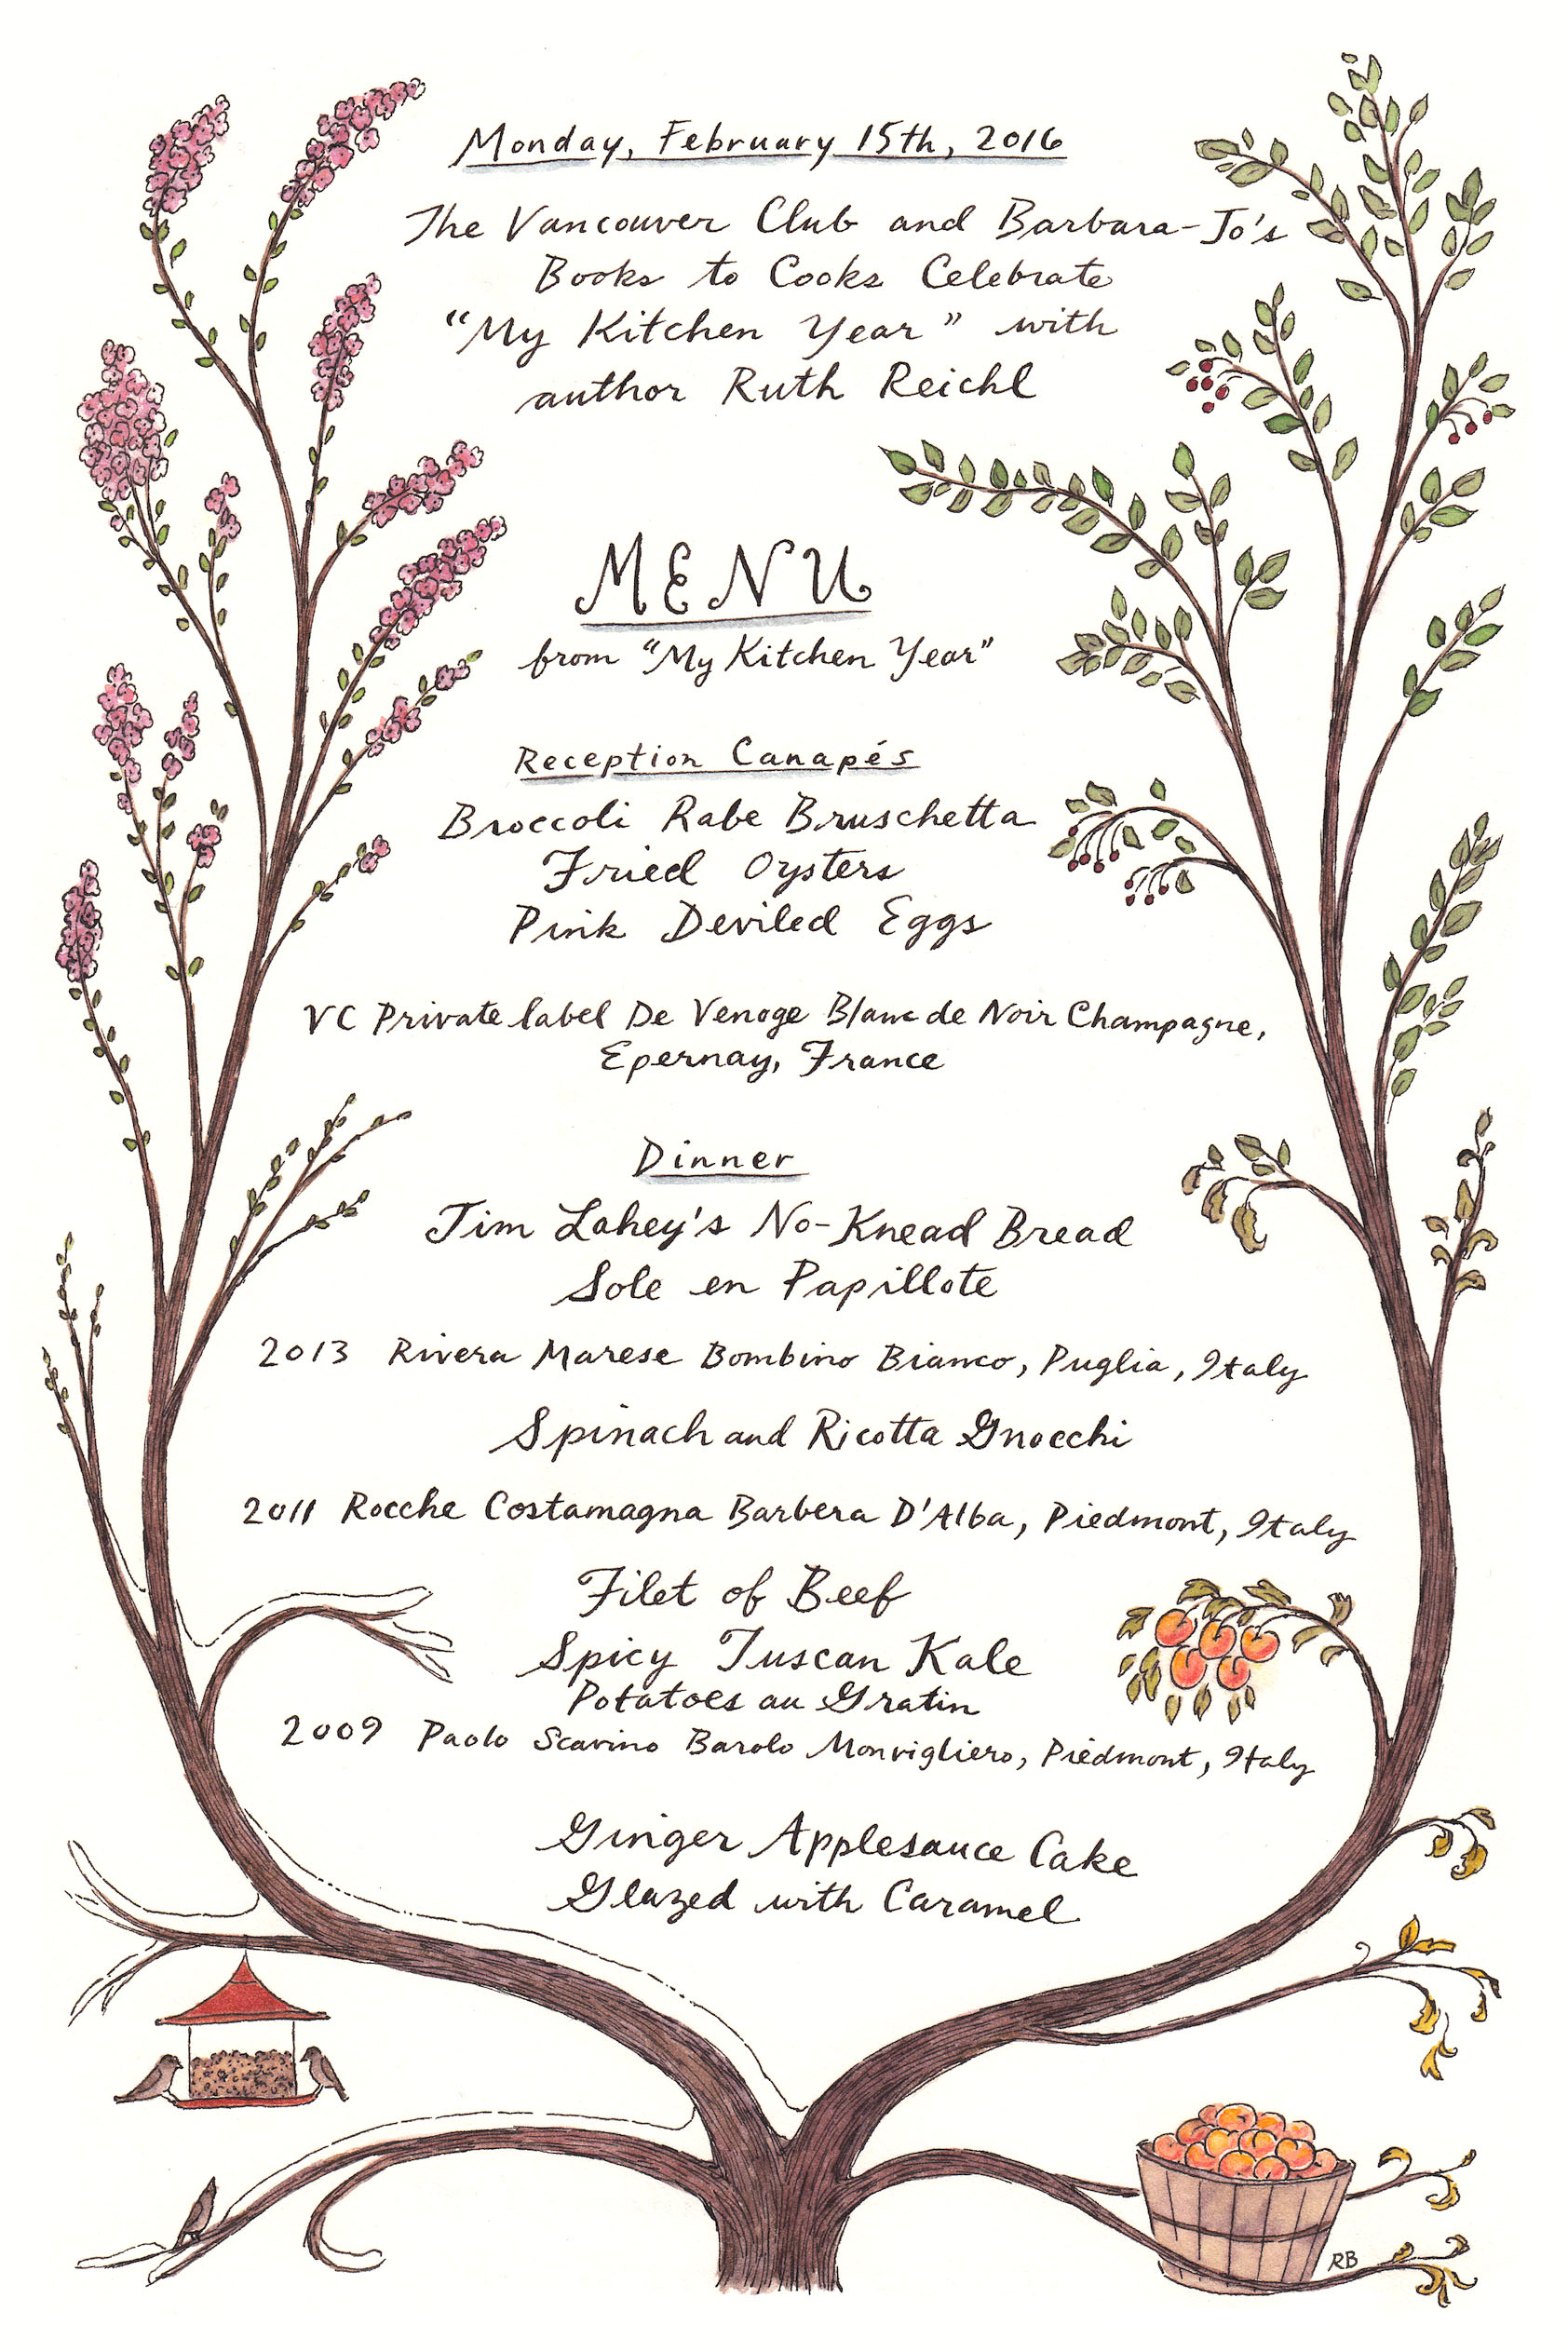 Monday, February 15th, 2016
The Vancouver Club and Barbara-Jo's
Books to Cooks Celebrate
"My Kitchen Year" with
author Ruth Reichl
MENU
from "My Kitchen Year"
Reception Canapés
Broccoli Rabe Bruschetta
Fried Oysters
Pink Deviled Eggs
VC Private label De Venoge Blanc de Noir Champagne,
Epernay, France
Dinner
Jim Lahey's No-Knead Bread
Sole en Papillote
2013 Rivera Marese Bombino Bianco, Puglia, Italy
Spinach and Ricotta Gnocchi
2011 Rocche Costamagna Barbera D'Alba, Piedmont, Italy
Filet of Beef
Spicy Tuscan Kale
Potatoes au Gratin
2009 Paolo Scavino Barolo Monvigliero, Piedmont, Italy
Ginger Applesauce Cake
Glazed with Caramel
RB